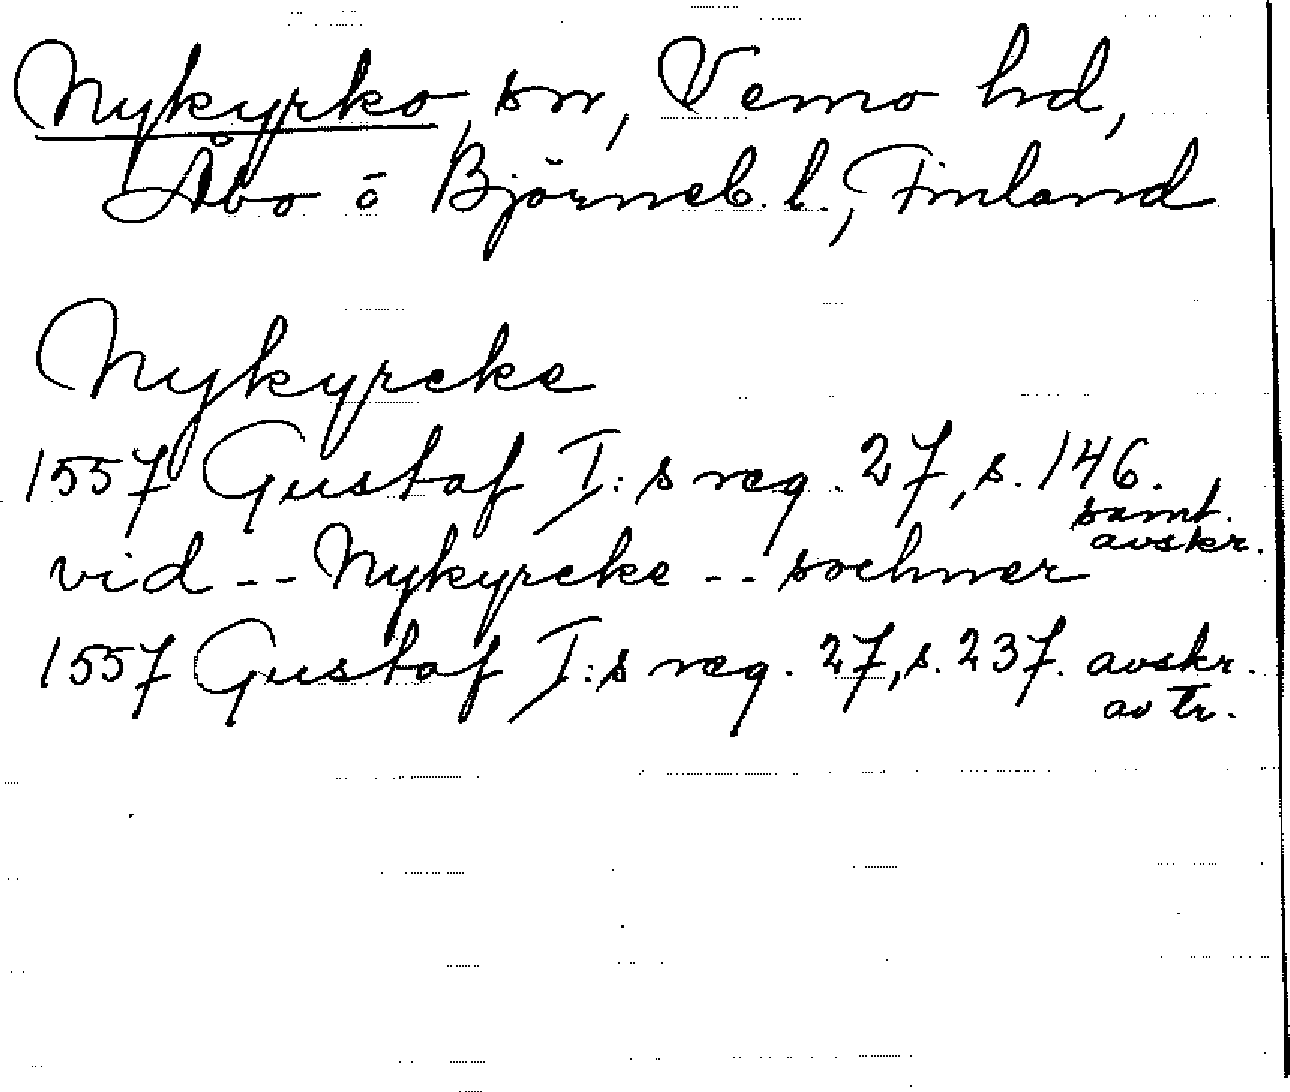 Nykyrko, sn, Vemo hd,
Åbo o Björneb. l., Finland
Nykyrcke
1557 Gustaf I:s reg. 27, s. 146.
samt.
avskr.
vid -- Nykyrcke -- sochner
1557 Gustaf I:s reg. 27, s. 237. avskr.
av tr.